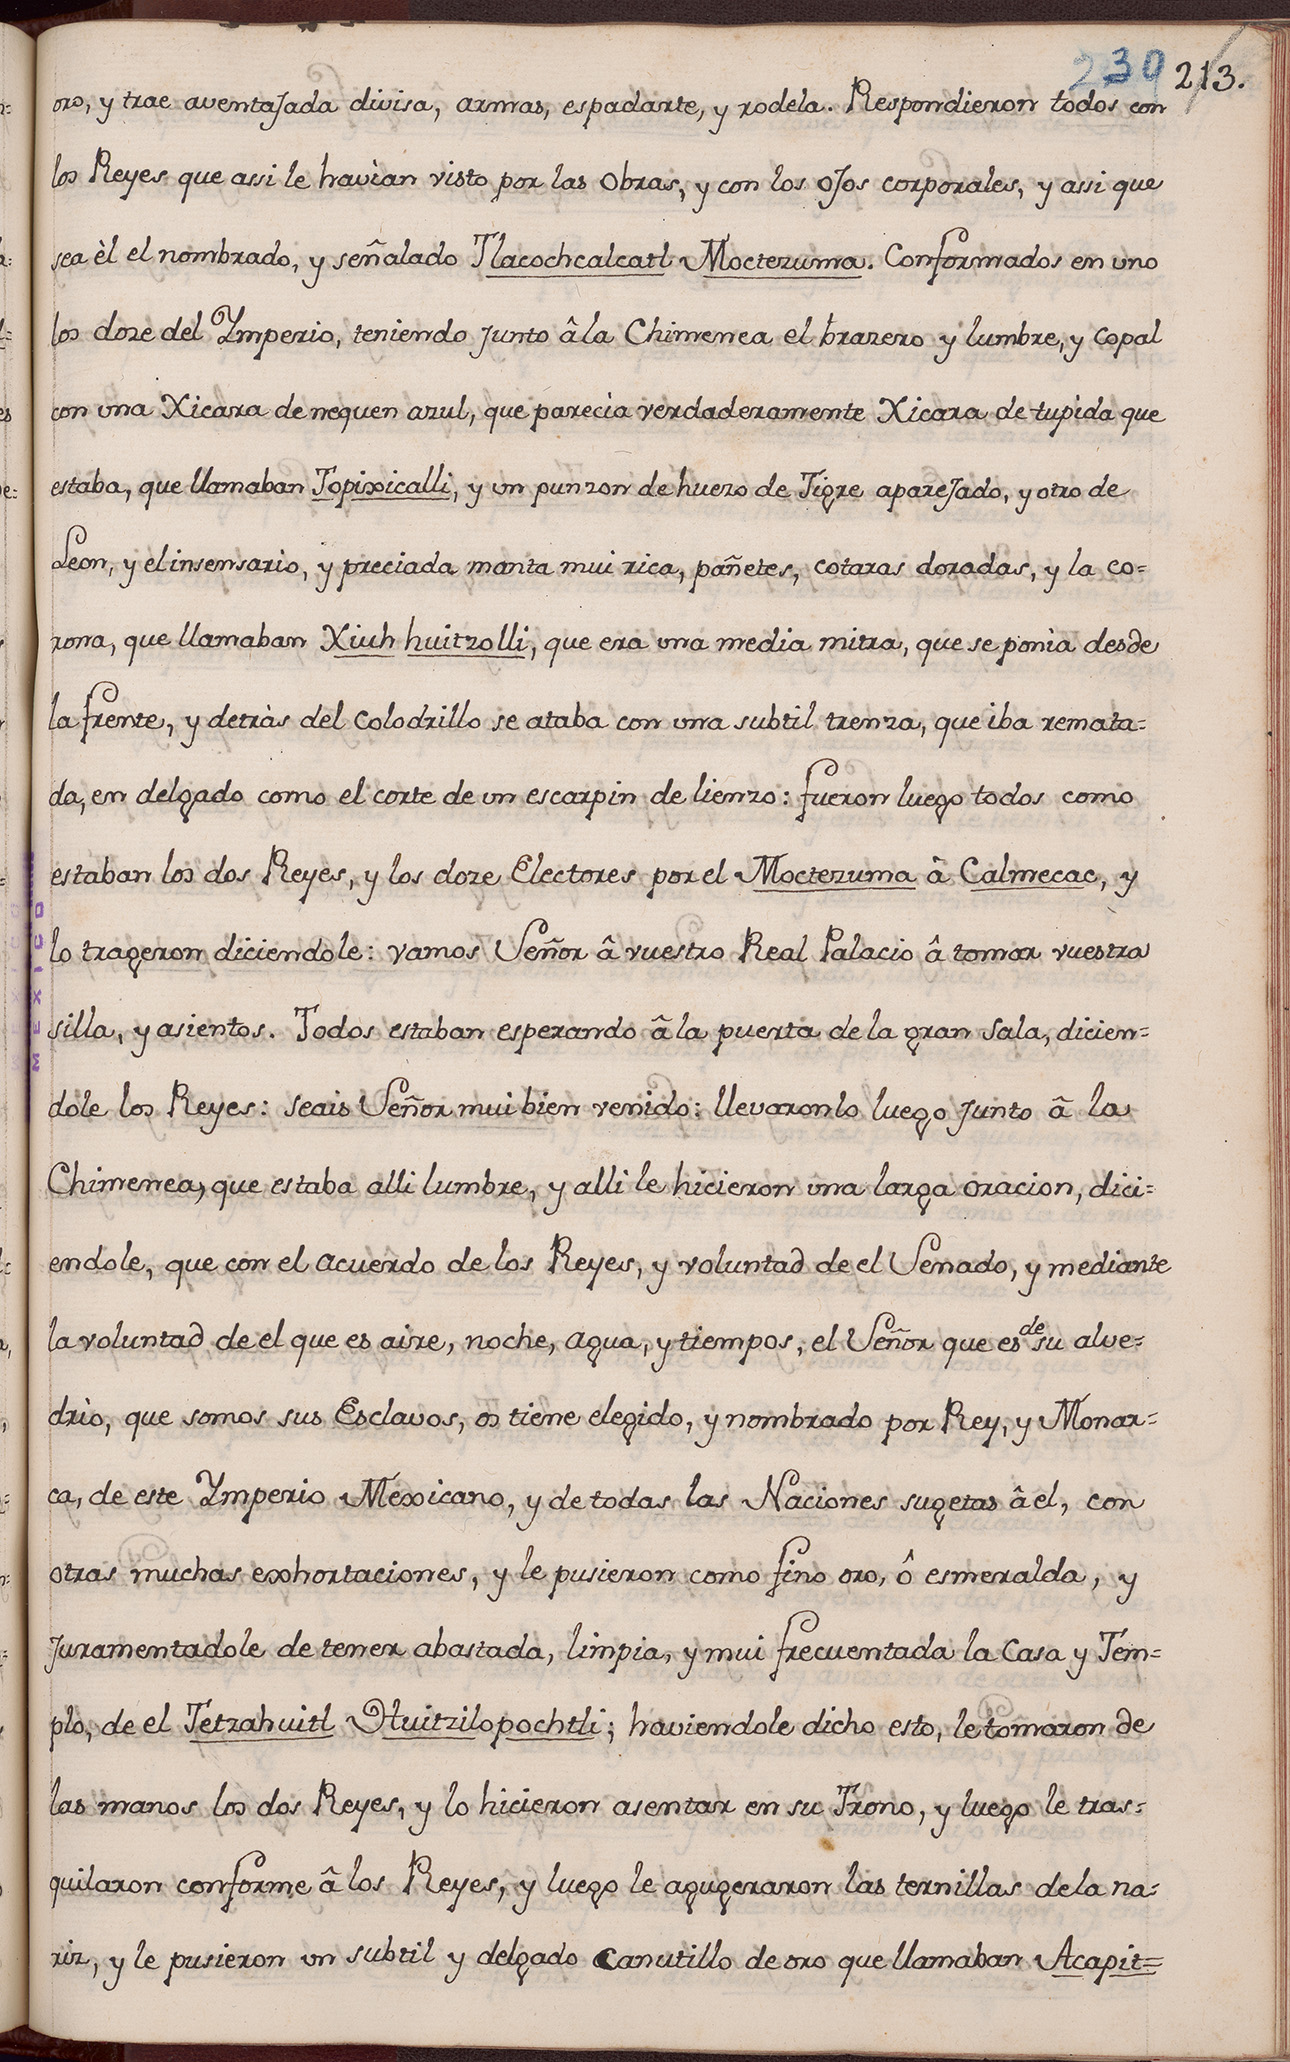 230 213.
oro, y trae aventaJada divisa, armas, espadarte, y rodela. Respondieron todos con
los Reyes que assi le havian visto por las Obras, y con los oJos corporales, y assi que
sea èl el nombrado, y señalado Tlacochcalcatl Moctezuma. Conformados en uno
los doze del Ymperio, teniendo Junto â la Chimenea el brazero y lumbre, y Copal
con una Xicara de nequen azul, que parecìa verdaderamente Xicara de tupida que
estaba, que llamaban Topixicalli, y un punzon de huezo de Tigre apareJado, y otro de
Leon, y el insensario, y preciada manta mui rica, pañetes, cotaras doradas, y la co=
rona, que llamaban Xiuh huitzolli, que era una media mitra, que se ponìa desde
la frente, y detràs del Colodrillo se ataba con una subtil trenza, que iba remata=
da, en delgado como el corte de un escarpin de lienzo: fueron luego todos como
estaban los dos Reyes, y los doze Electores por el Moctezuma â Calmecac, y
lo trageron diciendole: vamos Señor â vuestro Real Palacio â tomar vuestra
silla, y asientos. Todos estaban esperando â la puerta de la gran Sala, dicien=
dole los Reyes: seais Señor mui bien venido: llevaronlo luego Junto â la
Chimenea, que estaba alli lumbre, y alli le hicieron una larga oracion, dici=
endole, que con el acuerdo de los Reyes, y voluntad de el Senado, y mediante
la voluntad de el que es aire, noche, agua, y tiempos, el Señor que es de su alve=
drio, que somos sus Esclavos, os tiene elegido, y nombrado por Rey, y Monar=
ca, de este Ymperio Mexicano, y de todas las Naciones sugetas â el, con
otras muchas exhortaciones, y le pusieron como fino oro, ô esmeralda, y
Juramentadole de tener abastada, limpia, y mui frecuentada la Casa y Tem=
plo, de el Tetzahuitl Huitzilopochtli; haviendole dicho esto, le tomaron de
las manos los dos Reyes, y lo hicieron asentar en su Trono, y luego le tras=
quilaron conforme â los Reyes, y luego le agugeraron las ternillas de la na=
riz, y le pusieron un subtil y delgado Canutillo de oro que llamaban Acapit=
MEXICO